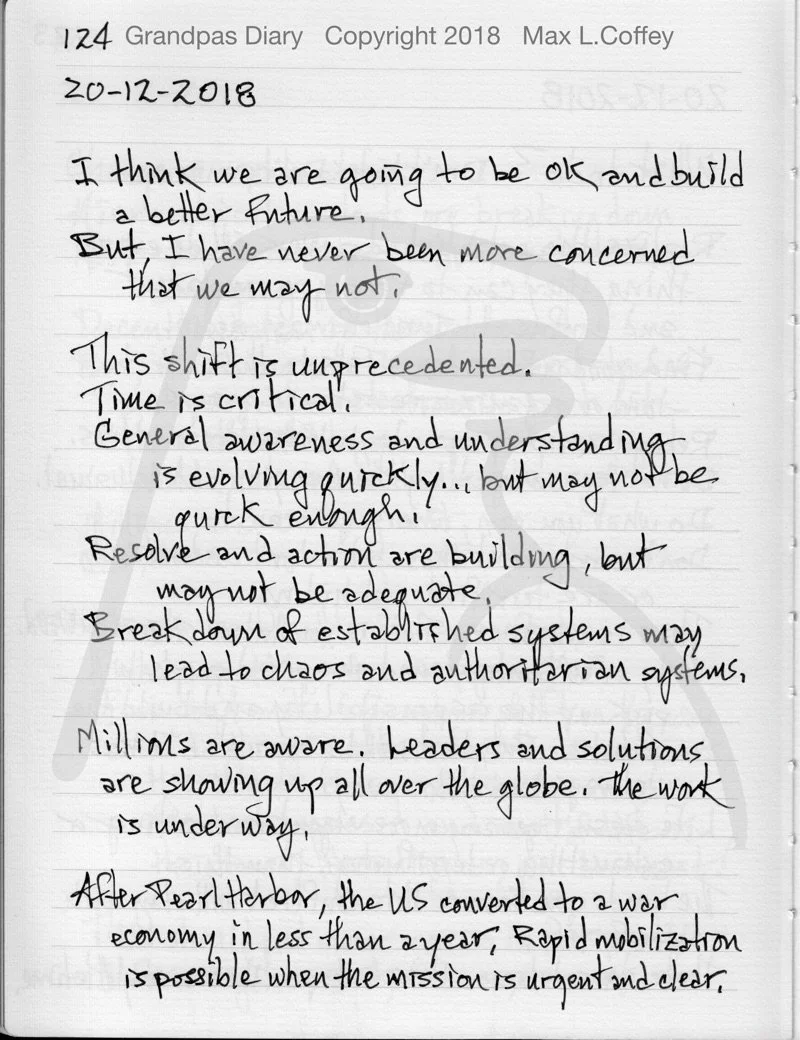 124 Grandpas Diary Copyright 2018 Max L.Coffey
20-12-2018
I think we are going to be OK and build
a better future.
But, I have never been more concerned
that we may not.
This shift is unprecedented.
Time is critical.
General awareness and understanding
is evolving quickly... but may not be
quick enough.
Resolve and action are building, but
may not be adequate.
Breakdown of established systems may
lead to chaos and authoritarian systems.
Millions are aware. Leaders and solutions
are showing up all over the globe. The work
is underway.
After Pearl Harbor, the US converted to a war
economy in less than a year. Rapid mobilization
is possible when the mission is urgent and clear.